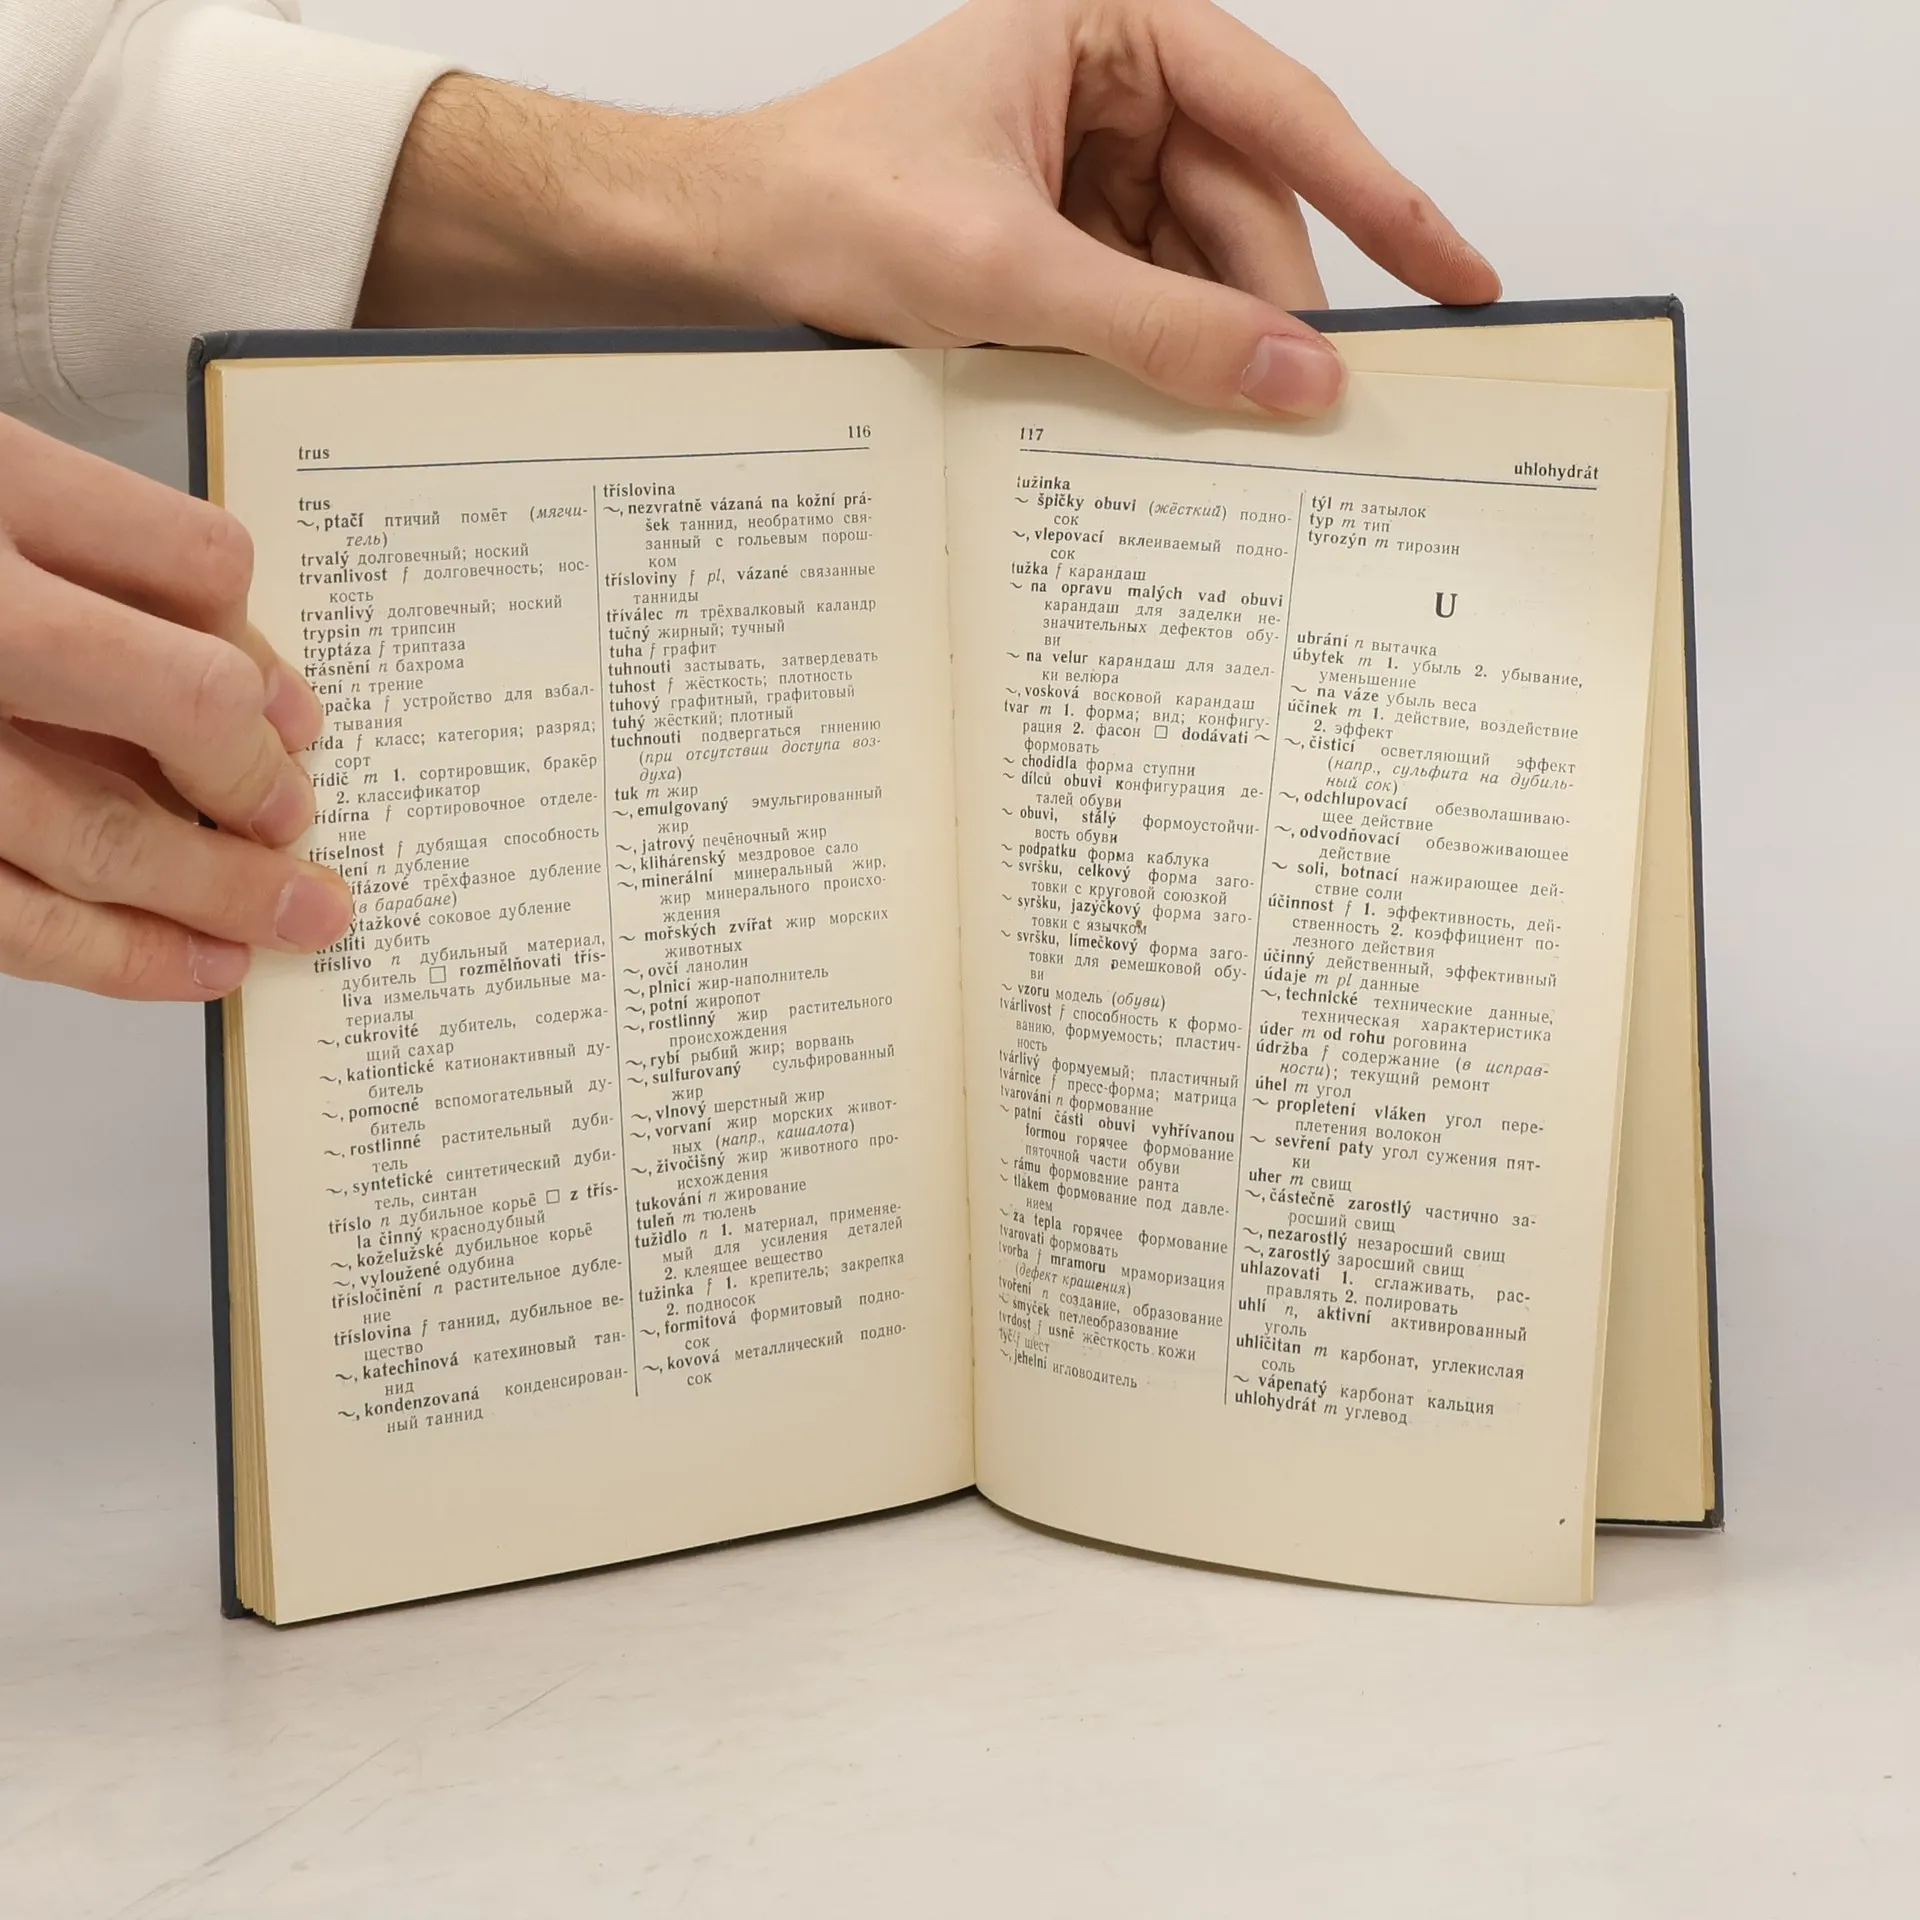 trus
116
trus
~, ptačí птичий помёт (мягчи-
тель)
trvalý долговечный; ноский
trvanlivost f долговечность; нос-
кость
trvanlivý долговечный; ноский
trypsin m трипсин
tryptáza f триптаза
třásnění n бахрома
ření n трение
pačka f устройство для взбал-
тывания
řída f класс; категория; разряд;
сорт
řidič m 1. сортировщик, бракёр
2. классификатор
řídírna f сортировочное отделе-
ние
tříselnost f дубящая способность
lení n дубление
ífázové трёхфазное дубление
(в барабане)
ýtažkové соковое дубление
tříslití дубить
tříslivo n дубильный материал,
дубитель □ rozmělňovati třís-
liva измельчать дубильные ма-
териалы
~, cukrovité дубитель, содержа-
щий сахар
~, kationtické катионактивный ду-
битель
~, pomocné вспомогательный ду-
битель
~, rostlinné растительный дуби-
тель
~, syntetické синтетический дуби-
тель, синтан
tříslo n дубильное корьё □ z třís-
la činný краснодубный
~, koželužské дубильное корьё
~, vyloužené одубина
třísločinění n растительное дубле-
ние
tříslovina f таннид, дубильное ве-
щество
~, katechinová катехиновый тан-
нид
~, kondenzovaná конденсирован-
ный таннид
tříslovina
~, nezvratně vázaná na kožní prá-
šek таннид, необратимо свя-
занный с гольевым порош-
ком
třísloviny f pl, vázané связанные
танниды
tříválec m трёхвалковый каландр
tučný жирный; тучный
tuha f графит
tuhnouti застывать, затвердевать
tuhost f жёсткость; плотность
tuhový графитный, графитовый
tuhý жёсткий; плотный
tuchnouti подвергаться гниению
(при отсутствии доступа воз-
духа)
tuk m жир
~, emulgovaný эмульгированный
жир
~, jatrový печёночный жир
~, klihárenský мездровое сало
~, minerální минеральный жир,
жир минерального происхо-
ждения
~ mořských zvířat жир морских
животных
~, ovčí ланолин
~, plnicí жир-наполнитель
~, potní жиропот
~, rostlinný жир растительного
происхождения
~, rybí рыбий жир; ворвань
~, sulfurovaný сульфированный
жир
~, vlnový шерстный жир
~, vorvaní жир морских живот-
ных (напр., кашалота)
~, živočišný жир животного про-
исхождения
tukování n жирование
tuleň m тюлень
tužidlo n 1. материал, применяе-
мый для усиления деталей
2. клеящее вещество
tužinka f 1. крепитель; закрепка
2. подносок
~, formitová формитовый подно-
сок
~, kovová металлический подно-
сок
117
uhlohydrát
tužinka
~ špičky obuvi (жёсткий) подно-
сок
~, vlepovací вклеиваемый подно-
сок
tužka f карандаш
~ na opravu malých vad obuvi
карандаш для заделки не-
значительных дефектов обу-
ви
~ na velur карандаш для задел-
ки велюра
~, vosková восковой карандаш
tvar m 1. форма; вид; конфигу-
рация 2. фасон □ dodávati ~
формовать
~ chodidla форма ступни
~ dílců obuvi конфигурация де-
талей обуви
~ obuvi, stálý формоустойчи-
вость обуви
~ podpatku форма каблука
~ svršku, celkový форма заго-
товки с круговой союзкой
~ svršku, jazýčkový форма заго-
товки с язычком
~ svršku, límečkový форма заго-
товки для ремешковой обу-
ви
~ vzoru модель (обуви)
tvárlivost f способность к формо-
ванию, формуемость; пластич-
ность
tvárlivý формуемый; пластичный
tvárnice f пресс-форма; матрица
tvarování n формование
~ patní části obuvi vyhřívanou
formou горячее формование
пяточной части обуви
~ rámu формование ранта
~ tlakem формование под давле-
нием
~ za tepla горячее формование
tvarovati формовать
tvorba f mramoru мраморизация
(дефект крашения)
tvoření n создание, образование
~ smyček петлеобразование
tvrdost f usně жёсткость кожи
tyč f шест
~, jehelní игловодитель
týl m затылок
typ m тип
tyrozýn m тирозин
U
ubrání n вытачка
úbytek m 1. убыль 2. убывание,
уменьшение
~ na váze убыль веса
účinek m 1. действие, воздействие
2. эффект
~, čisticí осветляющий эффект
(напр., сульфита на дубиль-
ный сок)
~, odchlupovací обезволашиваю-
щее действие
~, odvodňovací обезвоживающее
действие
~ soli, botnací нажирающее дей-
ствие соли
účinnost f 1. эффективность, дей-
ственность 2. коэффициент по-
лезного действия
účinný действенный, эффективный
údaje m pl данные
~, technické технические данные,
техническая характеристика
úder m od rohu роговина
údržba f содержание (в исправ-
ности); текущий ремонт
úhel m угол
~ propletení vláken угол пере-
плетения волокон
~ sevření paty угол сужения пят-
ки
uher m свищ
~, částečně zarostlý частично за-
росший свищ
~, nezarostlý незаросший свищ
~, zarostlý заросший свищ
uhlazovati 1. сглаживать, рас-
правлять 2. полировать
uhlí n, aktivní активированный
уголь
uhličitan m карбонат, углекислая
соль
~ vápenatý карбонат кальция
uhlohydrát m углевод